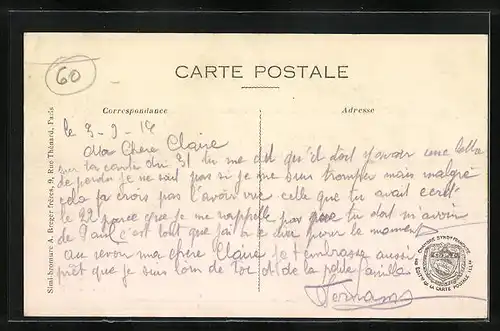 60
CARTE POSTALE
Correspondance
Adresse
le 3-9-14
Ma Chère Claire
sur ta carte du 31 tu me dit qu'il doit y avoir une
de perdu je ne sait pas si je me suis tromper mais malgré
cela je crois pas l'avoir vue celle que tu avait
le 22 parce que je me rappelle pas que tu doit m'avoir
de c'est tout que j'ai à te dire pour le moment
au revoir ma chère Claire je t'embrasse aussi
prêt que je suis loin de toi et de la petite famille
Simili-bromure A. Breger frères, 9, Rue Thénard, Paris